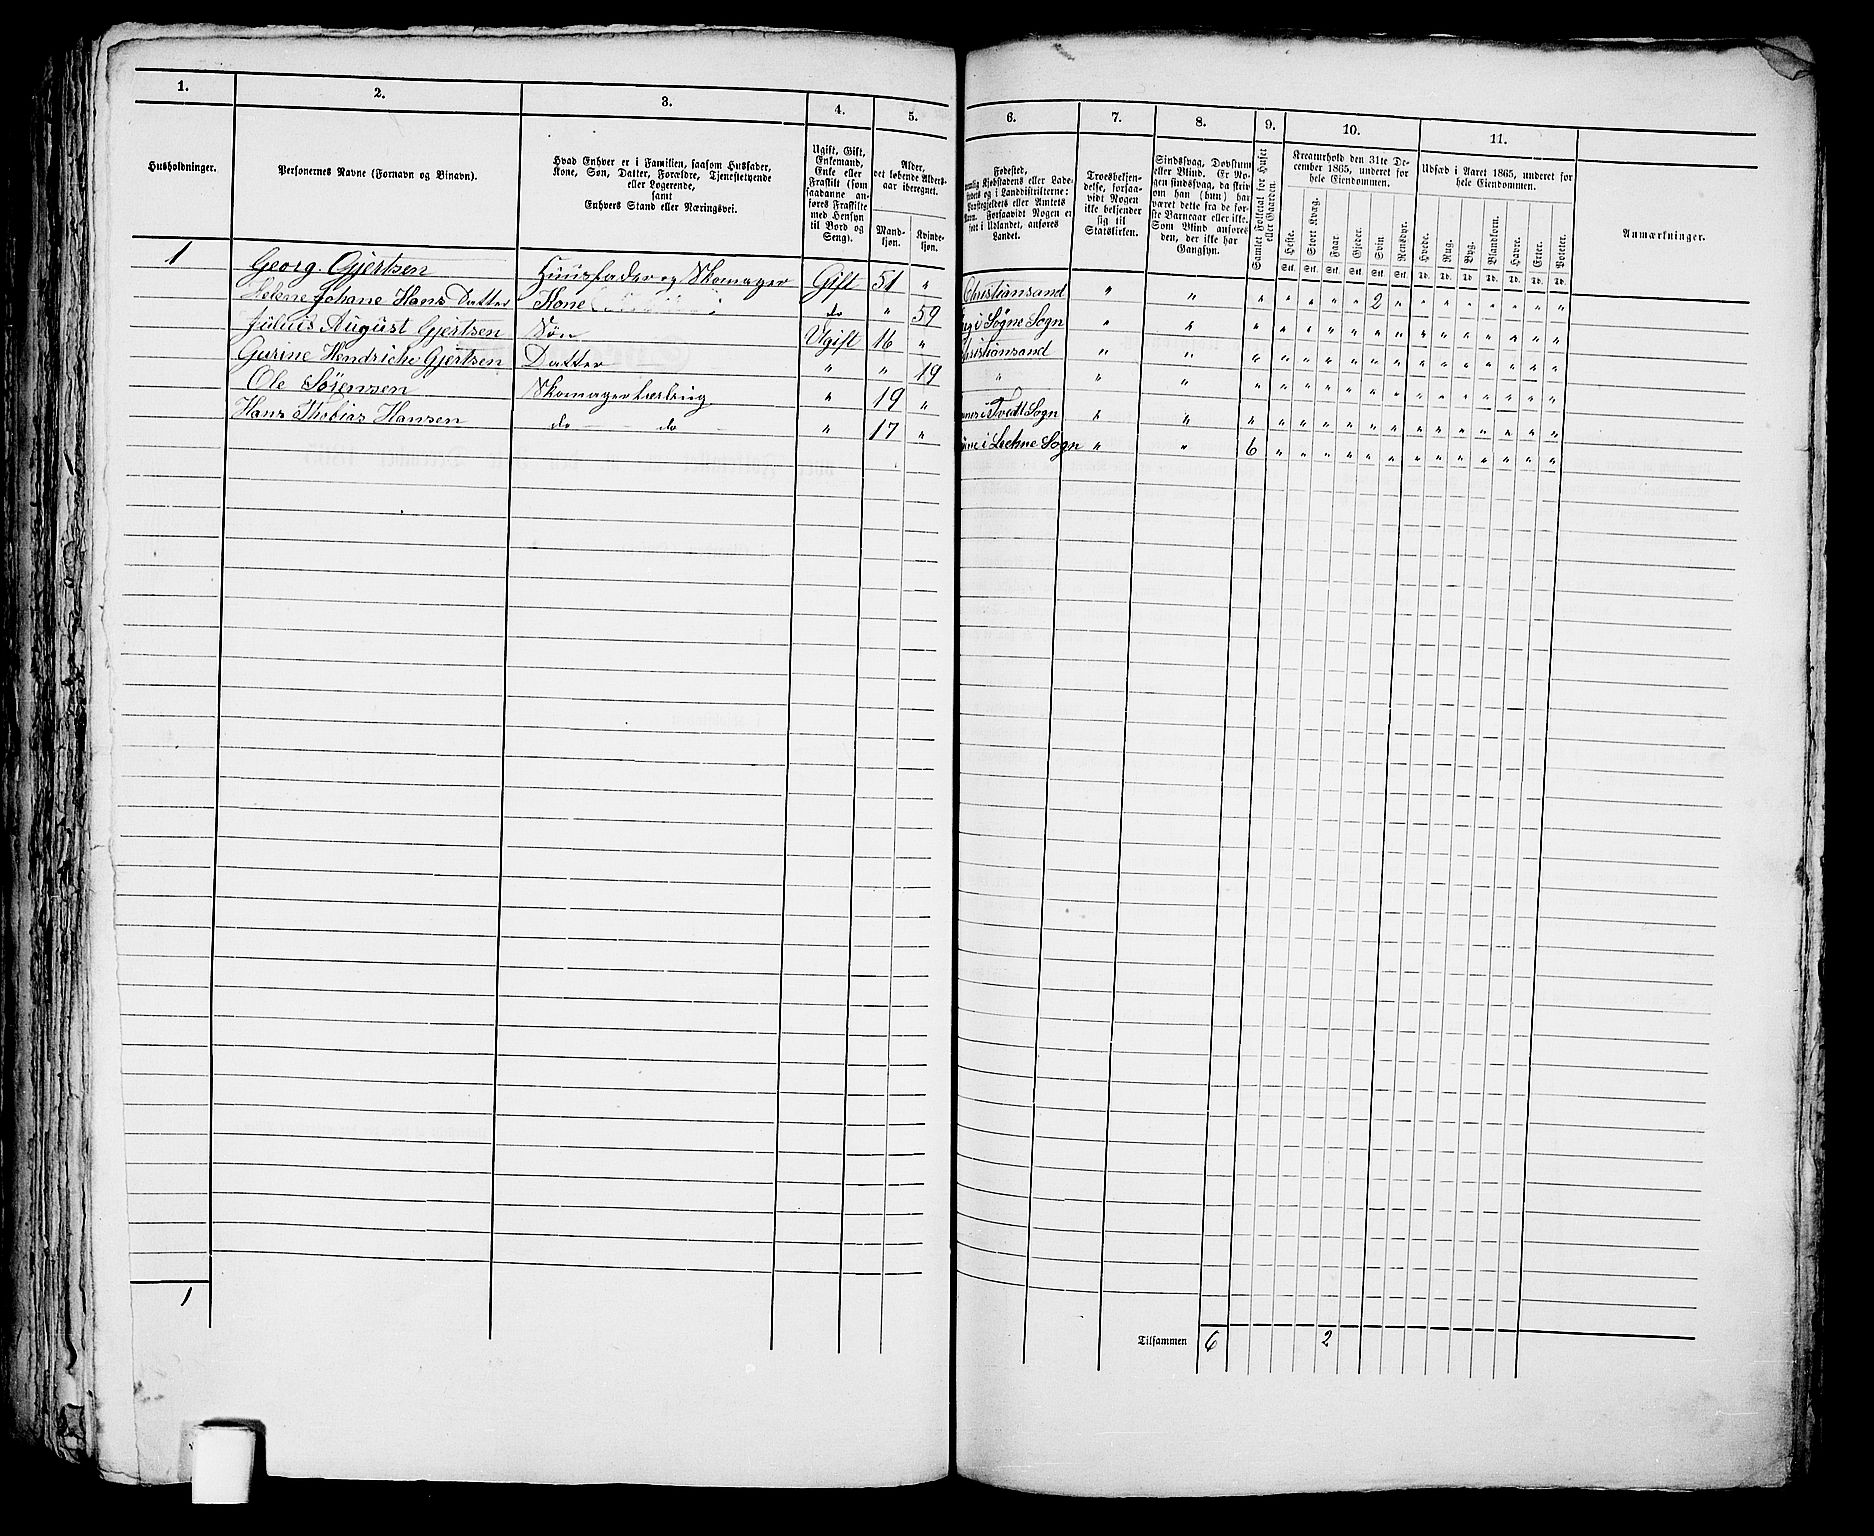 1. 2. 3. 4. 5. 6. 7. 8. 9. 10. 11.
Husholdninger.
Personernes Navne (Fornavn og Binavn).
Hvad Enhver er i Familien, saasom Husfader,
Kone, Søn, Datter, Forældre, Tjenestetyende
eller Logerende,
samt
Enhvers Stand eller Næringsvei.
Ugift, Gift,
Enkemand,
Enke eller
Fraskilt (som
saadanne an-
føres Fraskilte
med Hensyn
til Bord og
Seng).
Alder,
det løbende Alders-
aar iberegnet.
Mand-
kjøn.
Kvinde-
kjøn.
Fødested,
Kjøbstadens eller La-
destedets og i Landdistrikterne:
Præstegjeldets eller Amtets
Navn. Forsaavidt Nogen er
født i Udlandet, anføres
Landet.
Troesbekjen-
delse, forsaa-
vidt Nogen
ikke bekjender
sig til
Statskirken.
Sindssvag, Døvstum
eller Blind. Er No-
gen sindssvag, da skriv
om han (hun) har
været dette fra de før-
ste Barneaar eller ikke.
Som Blind anføres
den, der ikke har
Gangsyn.
Samlet Folketal for Huset
eller Gaarden.
Kreaturhold den 31te De-
cember 1865, underet for
hele Eiendommen.
Heste. Stort Kvæg. Faar. Gjeder. Svin. Rensdyr.
Stk. Stk. Stk. Stk. Stk. Stk.
Udsæd i Aaret 1865, underet for
hele Eiendommen.
Hvede. Rug. Byg. Blandkorn. Havre. Erter. Poteter.
Td. Td. Td. Td. Td. Td. Td.
Anmærkninger.
1 Georg. Gjertsen Huusfader og Skomager Gift 51 " Christiansand " " " " " " " 2 " " " " " " " "
Helene Johane Hans Datter Kone do " 59 i Søgne Sogn " " " " " " " " " " " " " " " "
Juluis August Gjertsen Søn Ugift 16 " Christiansand " " " " " " " " " " " " " " " "
Gurine Hendriche Gjertsen Datter " " 19 " " " " " " " " " " " " " " " " "
Ole Sørensen Skomagerlærling " 19 " i Tvedt Sogn " " " " " " " " " " " " " " " "
Hans Thobias Hansen do do " 17 " i Sogn " " 6 " " " " " " " " " " " " "
1
Tilsammen 6 2